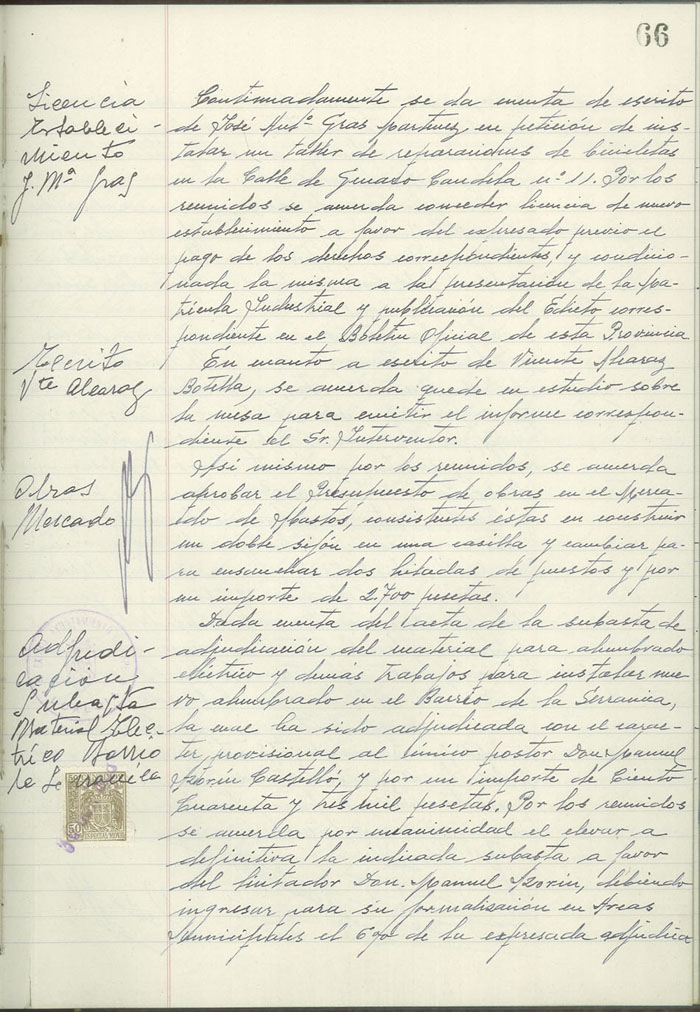 66
Licencia
Estableci-
miento
J. Mª Gras
Continuadamente se da cuenta de escrito
de José Mª Gras Martinez, en petición de ins-
talar un taller de reparaciones de bicicletas
en la Calle de Candela nº 11. Por los
reunidos se acuerda conceder licencia de nuevo
establecimiento a favor del expresado previo el
pago de los derechos correspondientes, y condicio-
nada la misma a la presentación de la ma-
tricula Industrial y publicación del Edicto corres-
pondiente en el Boletin Oficial de esta Provincia
Escrito
Vte Alcaraz
En cuanto a escrito de Vicente Alcaraz
Botella, se acuerda quede en estudio sobre
la mesa para emitir el informe correspon-
diente el Sr. Interventor.
Obras
Mercado
Asi mismo por los reunidos, se acuerda
aprobar el Presupuesto de obras en el Merca-
do de Abastos, consistentes éstas en construir
un doble sifón en una casilla y cambiar pa-
ra ensanchar dos hiladas de puestos y por
un importe de 2.700 pesetas.
Adjudi-
cación
Subasta
Material Eléc-
trico Barrio
la Serranica
Dada cuenta del acta de la subasta de
adjudicación del material para alumbrado
eléctrico y demás trabajos para instalar nue-
vo alumbrado en el Barrio de la Serranica,
la cual ha sido adjudicada con el carac-
ter provisional al único postor Don Manuel
Azorín Castelló, y por un importe de Ciento
Cuarenta y tres mil pesetas. Por los reunidos
se acuerda por unanimidad el elevar a
definitiva la indicada subasta a favor
del licitador Don Manuel Azorín, debiendo
ingresar para su formalización en Arcas
Municipales el 6% de la expresada adjudica
50